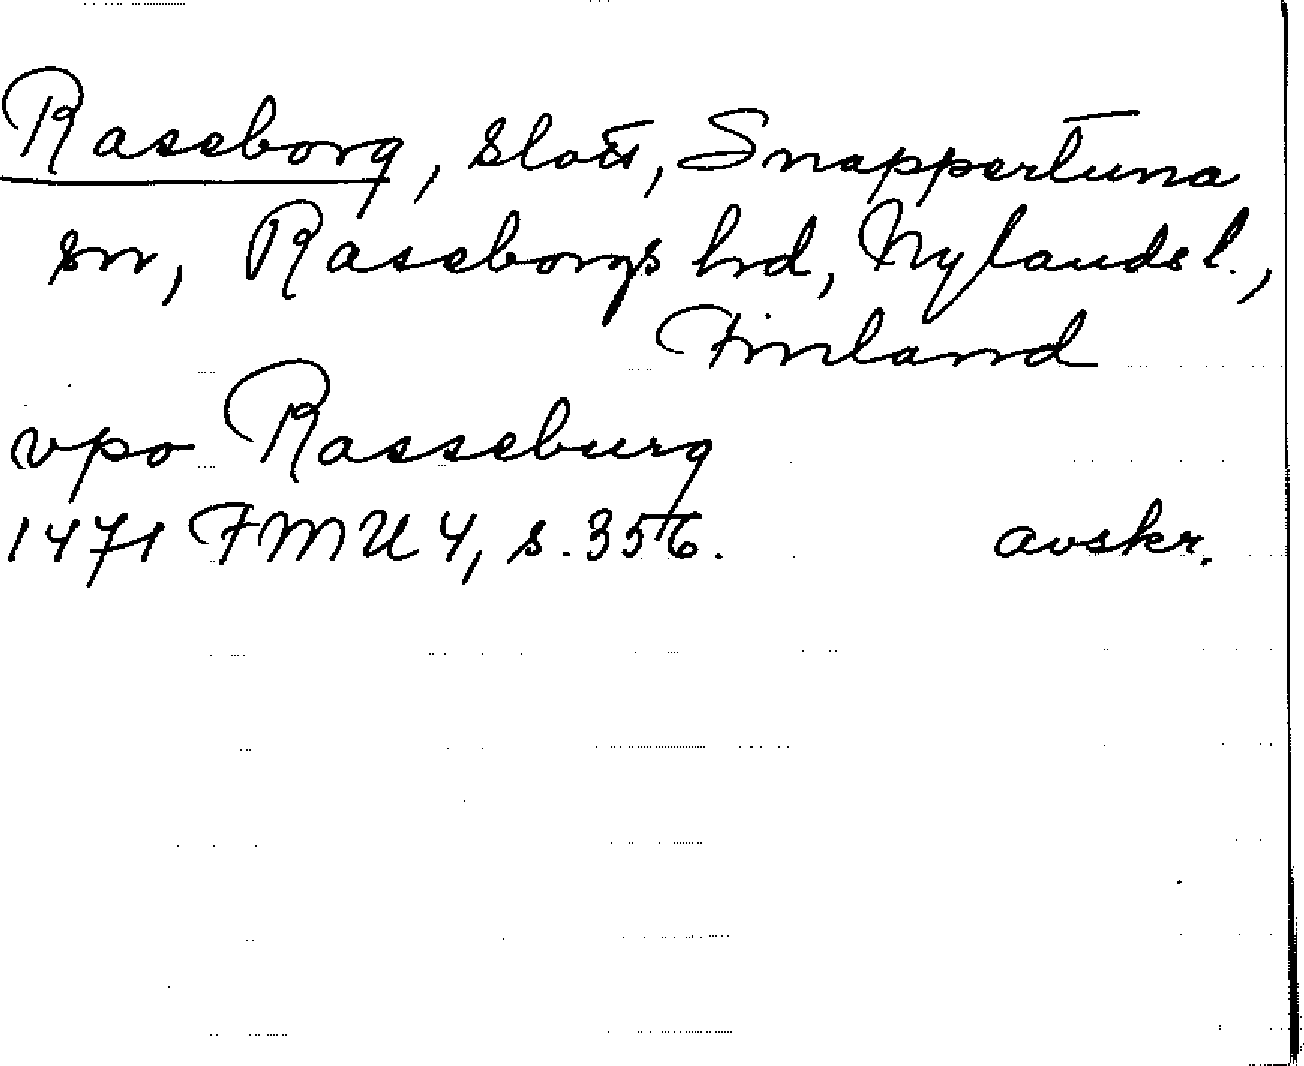 Raseborg, slott, Snappertuna
sn, Raseborgs hrd, Nylands l.,
Finland
vpo Rasseburg
1471 FMU 4, s. 356.
avskr.